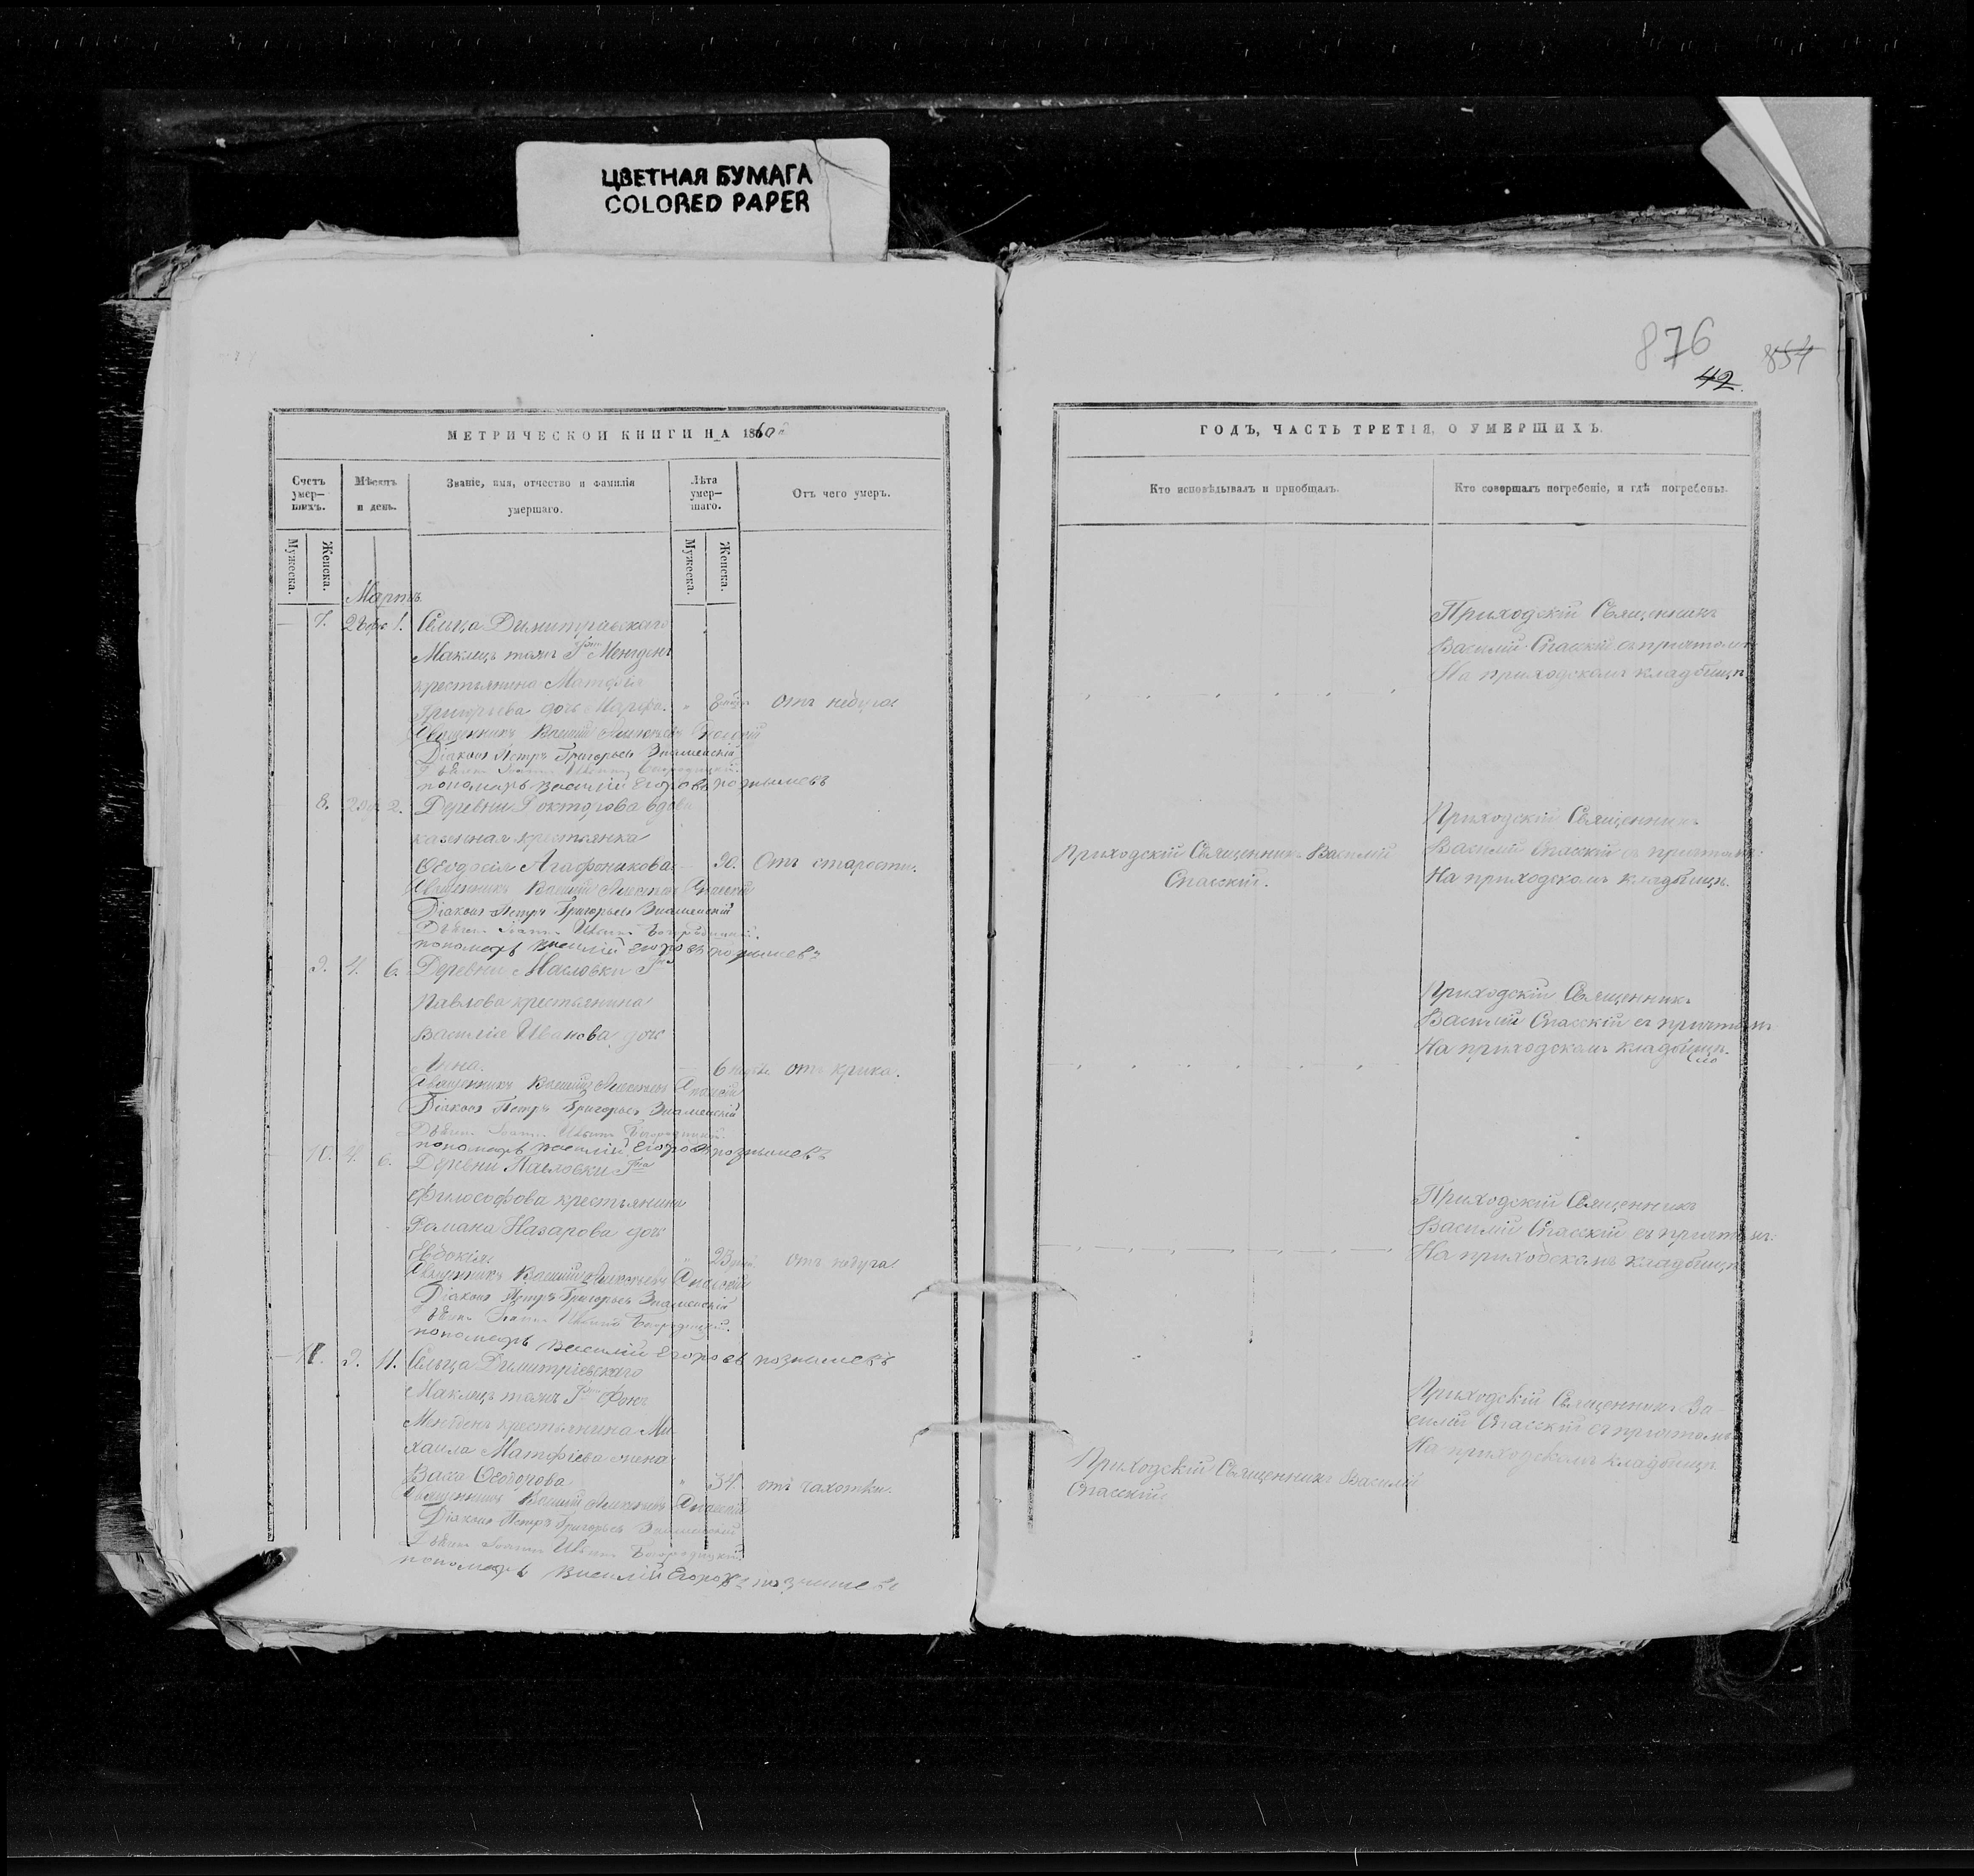 ЦВЕТНАЯ БУМАГА
COLORED PAPER
876
854
42
МЕТРИЧЕСКОЙ КНИГИ НА 1860й
Счетъ умер-шихъ.
Мѣсяцъ и день.
Званіе, имя, отчество и фамилія умершаго.
Лѣта умер-шаго.
Отъ чего умеръ.
Мужеска.
Женска.
Мужеска.
Женска.
Мартъ.
7. 1. Сельца Димитріевскаго
Маклецъ тожъ Гжи Менгденъ
крестьянина Матфія
Григорьева дочь Марфа. 8 отъ недуга
Священникъ Василій Алексѣевъ Спасскій
Діаконъ Петръ Григорьевъ Знаменскій
Іоаннъ Богородицкій
пономарь Василій Егоровъ
8. 2. Деревни вдова
казенная крестьянка
Ѳеодосія Агафоникова 90. Отъ старости.
Священникъ Василій Алексѣевъ Спасскій
Діаконъ Петръ Григорьевъ Знаменскій
Іоаннъ Богородицкій.
пономарь Василій Егоровъ
9. 4. 6. Деревни Масловки Гна
Павлова крестьянина
Василія Иванова дочь
Анна. 6 отъ крика.
Священникъ Василій Алексѣевъ Спасскій
Діаконъ Петръ Григорьевъ Знаменскій
Іоаннъ Богородицкій
пономарь Василій Егоровъ
10. 4. 6. Деревни Гна
Философова крестьянина
Романа Назарова дочь
Евдокія. отъ недуга
Священникъ Василій Алексѣевъ Спасскій
Діаконъ Петръ Григорьевъ Знаменскій
Іоаннъ Богородицкій.
пономарь Василій Егоровъ
11. 9. 11. Сельца Димитріевскаго
Маклецъ тожъ Гжи Фонъ
Менгденъ крестьянина Ми
хаила Матфіева жена
Васса 34. отъ чахотки.
Священникъ Василій Алексѣевъ Спасскій
Діаконъ Петръ Григорьевъ Знаменскій
Іоаннъ Богородицкій
пономарь Василій Егоровъ
ГОДЪ, ЧАСТЬ ТРЕТІЯ, О УМЕРШИХЪ.
Кто исповѣдывалъ и пріобщалъ.
Кто совершалъ погребеніе, и гдѣ погребены.
Приходскій Священникъ
Василій Спасскій съ причтомъ
На приходскомъ кладбищѣ
Приходскій Священникъ
Приходскій Священникъ Василій
Спасскій.
Василій Спасскій съ причтомъ
На приходскомъ кладбищѣ.
Приходскій Священникъ
Василій Спасскій съ причтомъ
На приходскомъ кладбищѣ.
Приходскій Священникъ
Василій Спасскій съ причтомъ
На приходскомъ кладбищѣ
Приходскій Священникъ Ва-
силій Спасскій съ причтомъ
На приходскомъ кладбищѣ
Приходскій Священникъ Василій
Спасскій